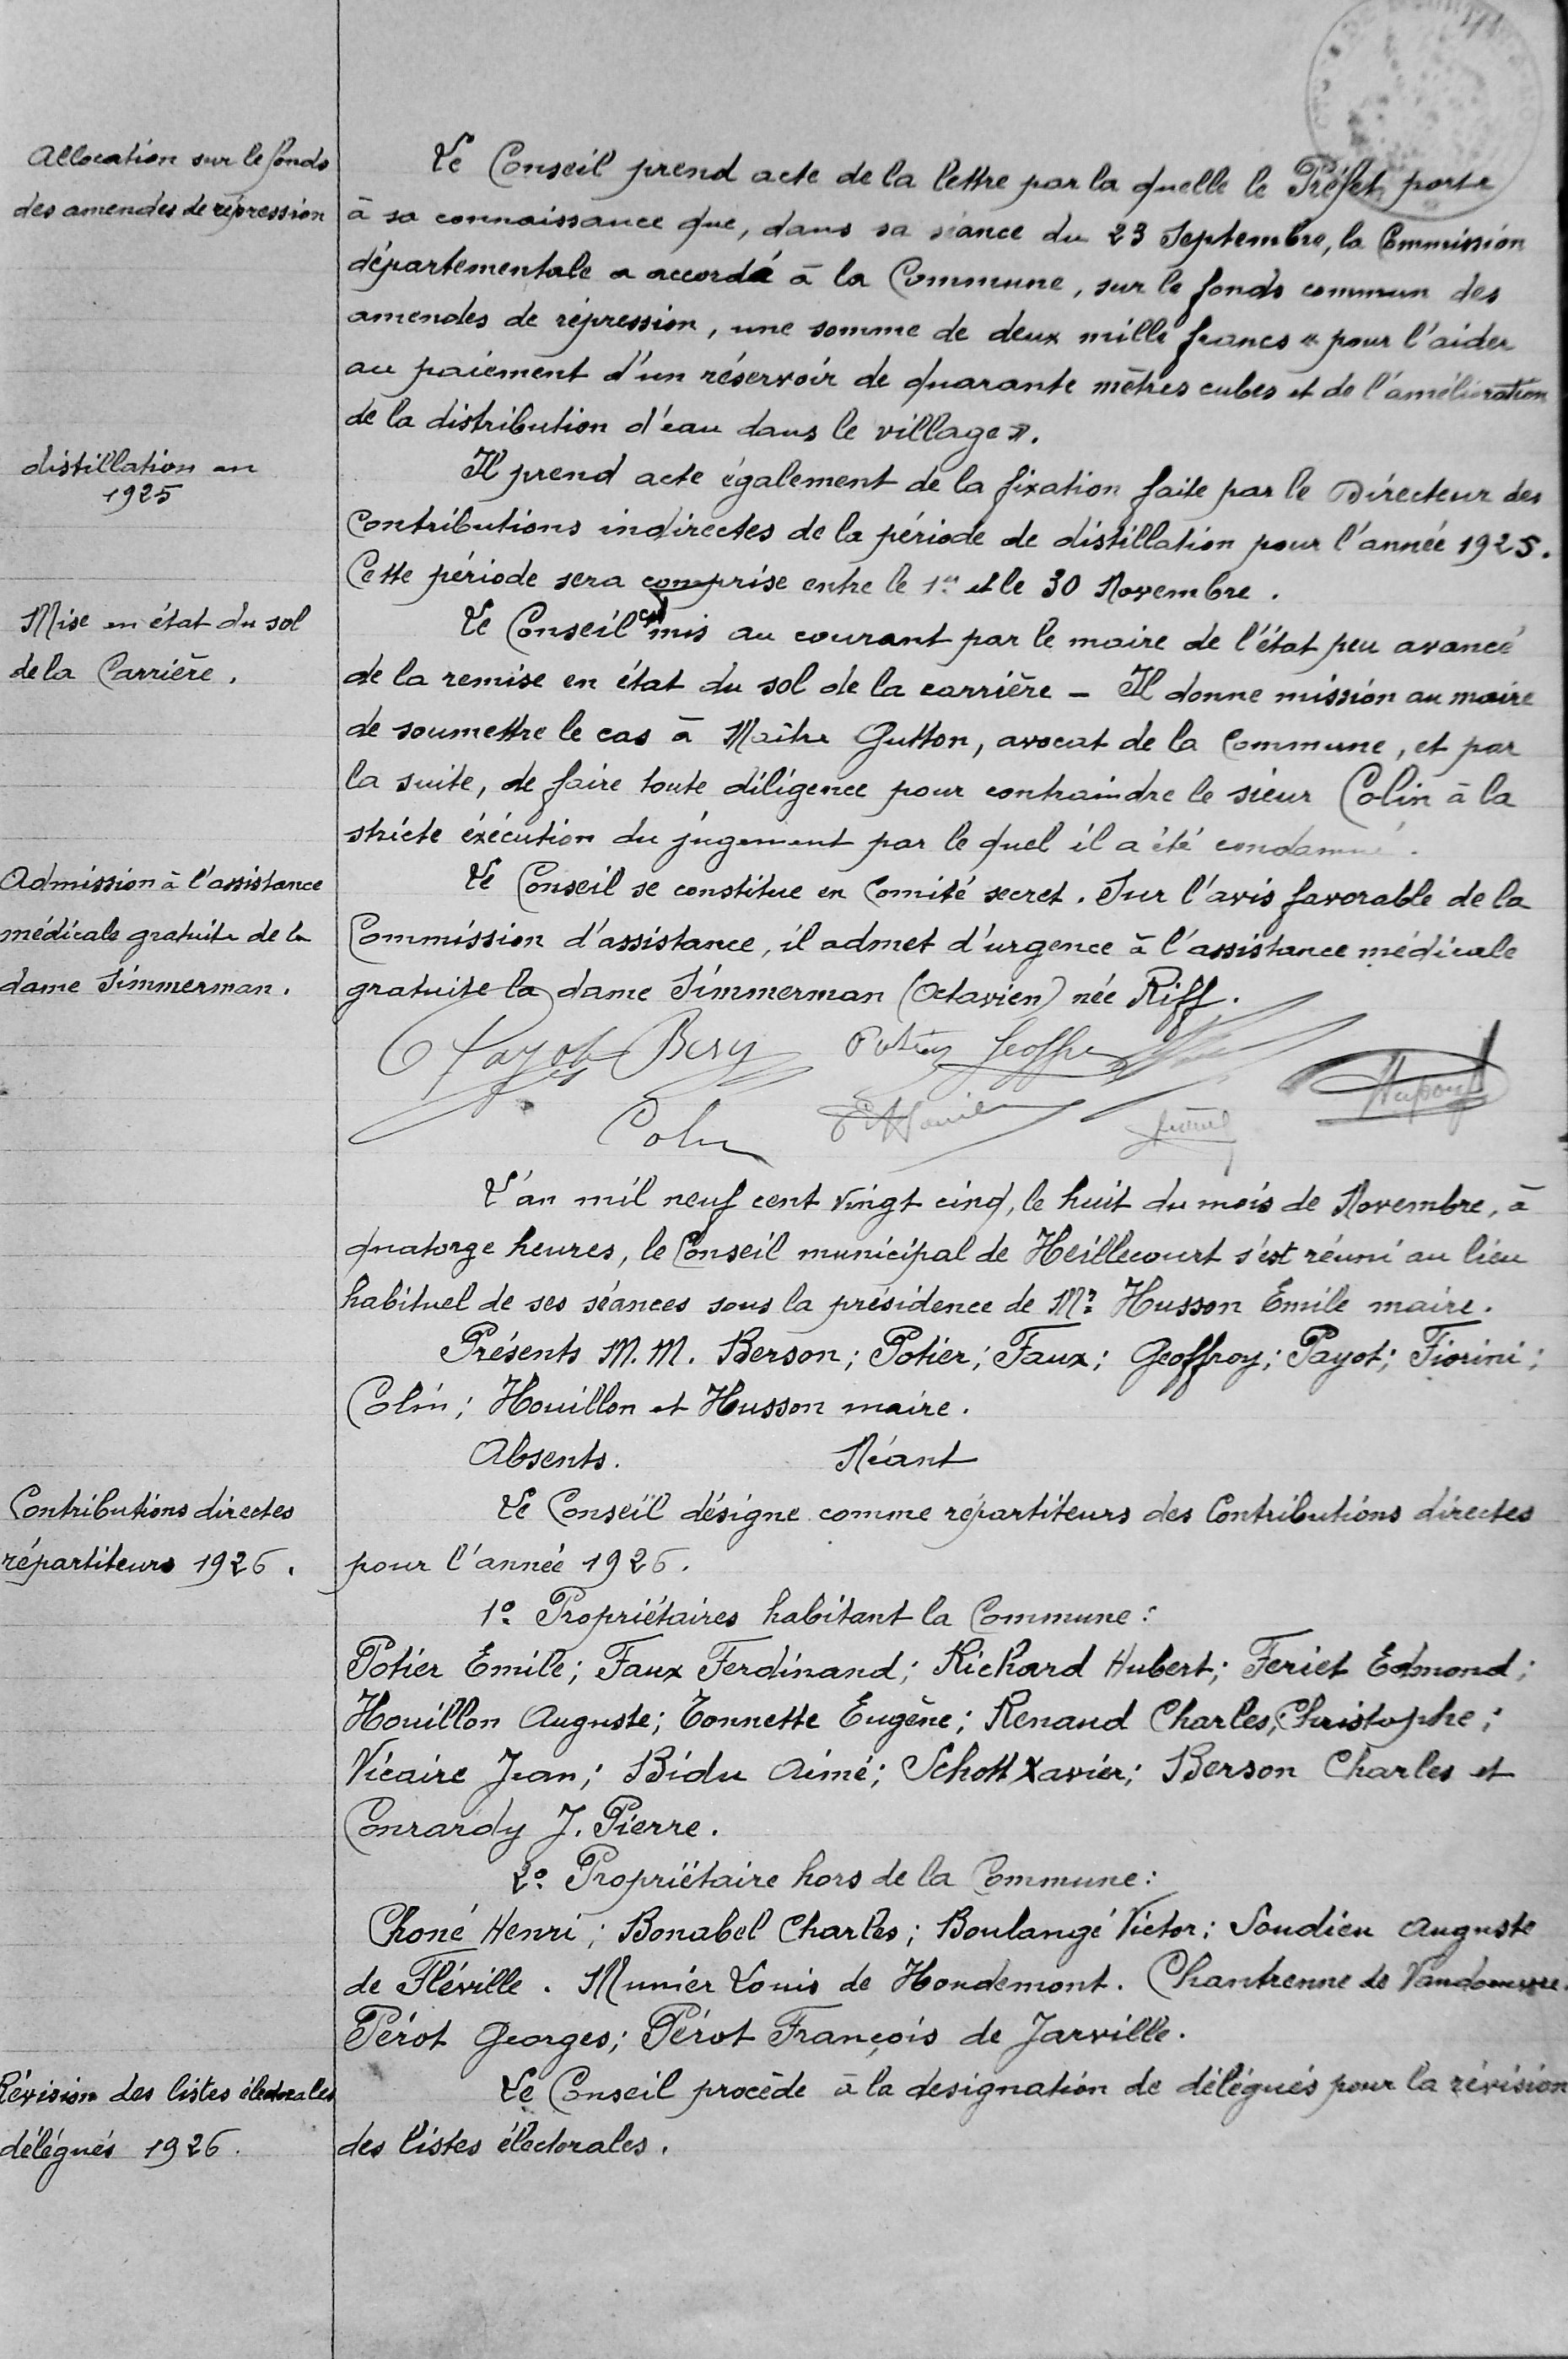 Allocation sur le fonds
des amendes de répression
Le Conseil prend acte de la lettre par la quelle le Préfet porte
à sa connaissance que, dans sa séance du 23 Septembre, la Commission
départementale a accordé à la Commune, sur le fonds commun des
amendes de répression, une somme de deux mille francs « pour l'aider
au paiement d'un réservoir de quarante mètres cubes et de l'amélioration
de la distribution d'eau dans le village ».
distillation en
1925
Il prend acte également de la fixation faite par le Directeur des
Contributions indirectes de la période de distillation pour l'année 1925.
Cette période sera comprise entre le 1er et le 30 Novembre.
Mise en état du sol
de la Carrière.
Le Conseil est mis au courant par le maire de l'état peu avancé
de la remise en état du sol de la carrière – Il donne mission au maire
de soumettre le cas à Maître Gutton, avocat de la Commune, et par
la suite, de faire toute diligence pour contraindre le sieur Colin à la
stricte éxécution du jugement par le quel il a été condamné.
Admission à l'assistance
médicale gratuite de la
dame Simmerman.
Le Conseil se constitue en Comité secret. Sur l'avis favorable de la
Commission d'assistance, il admet d'urgence à l'assistance médicale
gratuite la dame Simmerman (Octavien) née Riff.
Payot Potier Geoffroy
Colin
L'an mil neuf cent vingt cinq, le huit du mois de Novembre, à
quatorze heures, le Conseil municipal de Heillecourt s'est réuni au lieu
habituel de ses séances sous la présidence de Mr Husson Emile maire.
Présents M.M. Berson; Potier; Faux; Geoffroy; Payot; Fiorini;
Colin; Houillon et Husson maire.
Absents. Néant
Contributions directes
répartiteurs 1926.
Le Conseil désigne comme répartiteurs des Contributions directes
pour l'année 1926.
1º Propriétaires habitant la Commune:
Potier Emile; Faux Ferdinand; Richard Hubert; Feriet Edmond;
Houillon Auguste; Tonnette Eugène; Renaud Charles, Christophe;
Vicaire Jean; Bidu Aimé; Schott Xavier; Berson Charles et
Conrardy J. Pierre.
2º Propriétaire hors de la Commune:
Choné Henri; Bonabel Charles; Boulangé Victor; Soudieu Auguste
de Fléville. Munier Louis de Houdemont. Chantrenne de Vandoeuvre.
Pérot Georges; Pérot François de Jarville.
Révision des listes électorales
délégués 1926.
Le Conseil procède à la designation de délégués pour la révision
des listes électorales.